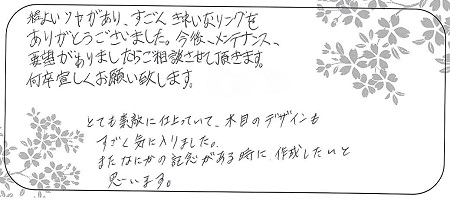 程よいツヤがあり、すごくきれいなリングを
ありがとうございました。今後、メンテナンス、
要望がありましたらご相談させて頂きます。
何卒宜しくお願い致します。
とても素敵に仕上っていて、木目のデザインも
すごく気に入りました。
またなにかの記念がある時に作成したいと
思います。